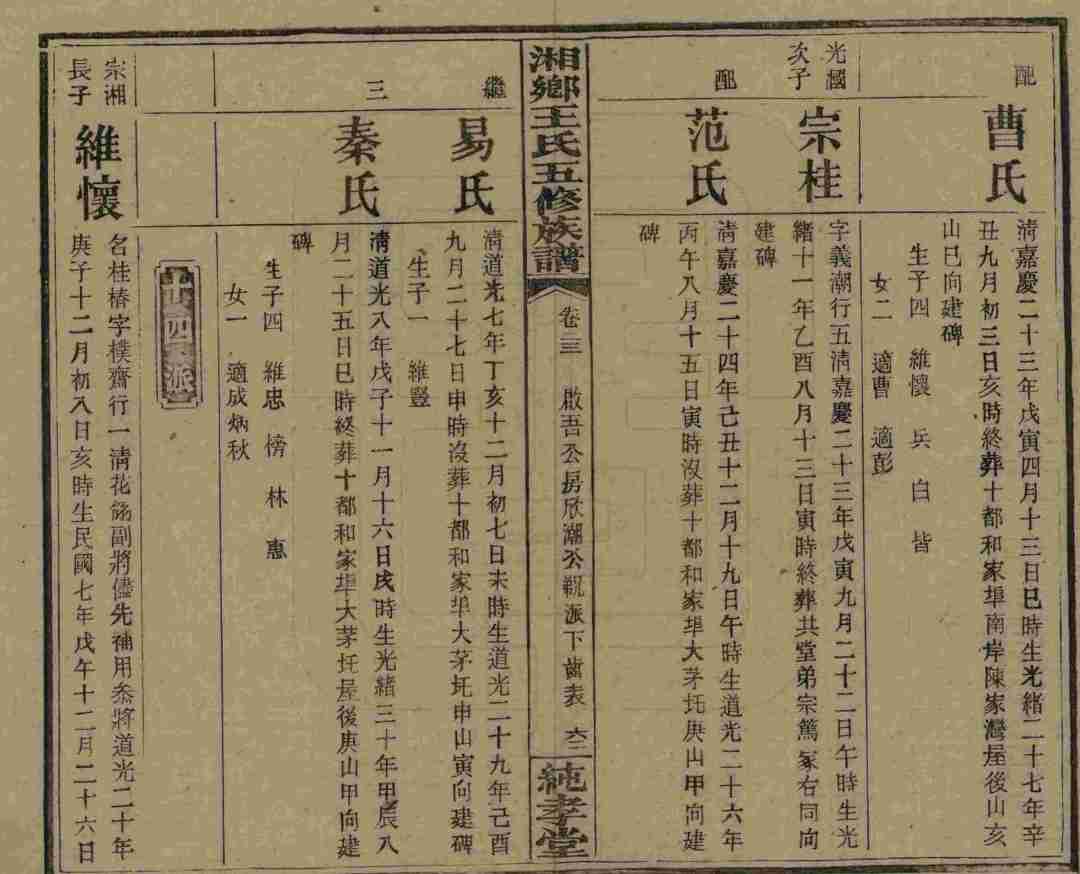 配
曹氏
清嘉慶二十三年戊寅四月十三日巳時生光緒二十七年辛
丑九月初三日亥時終葬十都和家埠南岸陳家灣屋後山亥
山巳向建碑
生子四 維懷 兵 白 皆
女二 適曹 適彭
光國
次子
宗桂
字義潮行五清嘉慶二十三年戊寅九月二十二日午時生光
緒十一年乙酉八月十三日寅時終葬共堂弟宗篤冢右同向
建碑
配
范氏
清嘉慶二十四年己丑十二月十九日午時生道光二十六年
丙午八月十五日寅時沒葬十都和家埠大茅圫庚山甲向建
碑
湘鄉王氏五修族譜
卷三 啟吾公房欣潮公 派下齒表
純孝堂
繼
易氏
清道光七年丁亥十二月初七日未時生道光二十九年己酉
九月二十七日申時沒葬十都和家埠大茅圫申山寅向建碑
生子一 維豐
三
秦氏
清道光八年戊子十一月十六日戌時生光緒三十年甲辰八
月二十五日巳時終葬十都和家埠大茅圫屋後庚山甲向建
碑
生子四 維忠 榜 林 惠
女一 適成炳秋
廿四派
宗湘
長子
維懷
名桂椿字樸齋行一清花翎副將儘先補用參將道光二十年
庚子十二月初八日亥時生民國七年戊午十二月二十六日